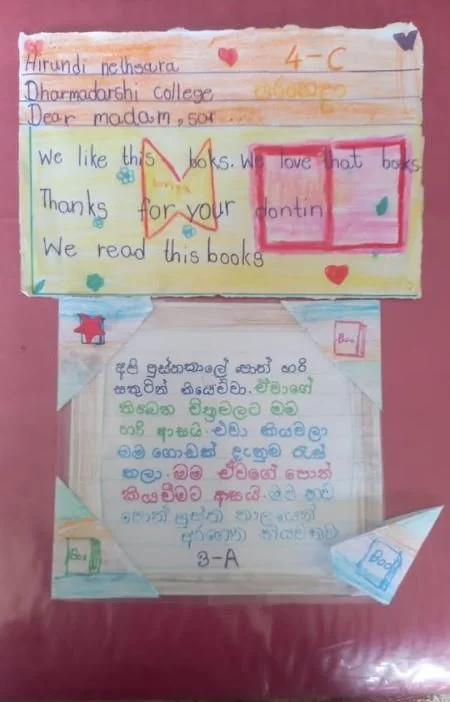 Hirundi nethsara
4-C
Dharmadarshi college
Dear madam, sar
We like this boks. We love that boks
Thanks for your dontin
We read this books
Boo
අපි පුස්තකාලේ පොත් හරි
සතුටින් කියෙව්වා. ඒවාගේ
තිබෙන චිත්‍රවලට මම
හරි ආසයි. එවා කියවලා
මම ගොඩක් දැනුම රැස්
කලා. මම ඒවගේ පොත්
කියවීමට ආසයි. මම තව
පොත් පුස්ත කාලයෙන්
අරගෙන කියවනවා
3-A
Boo
Boo